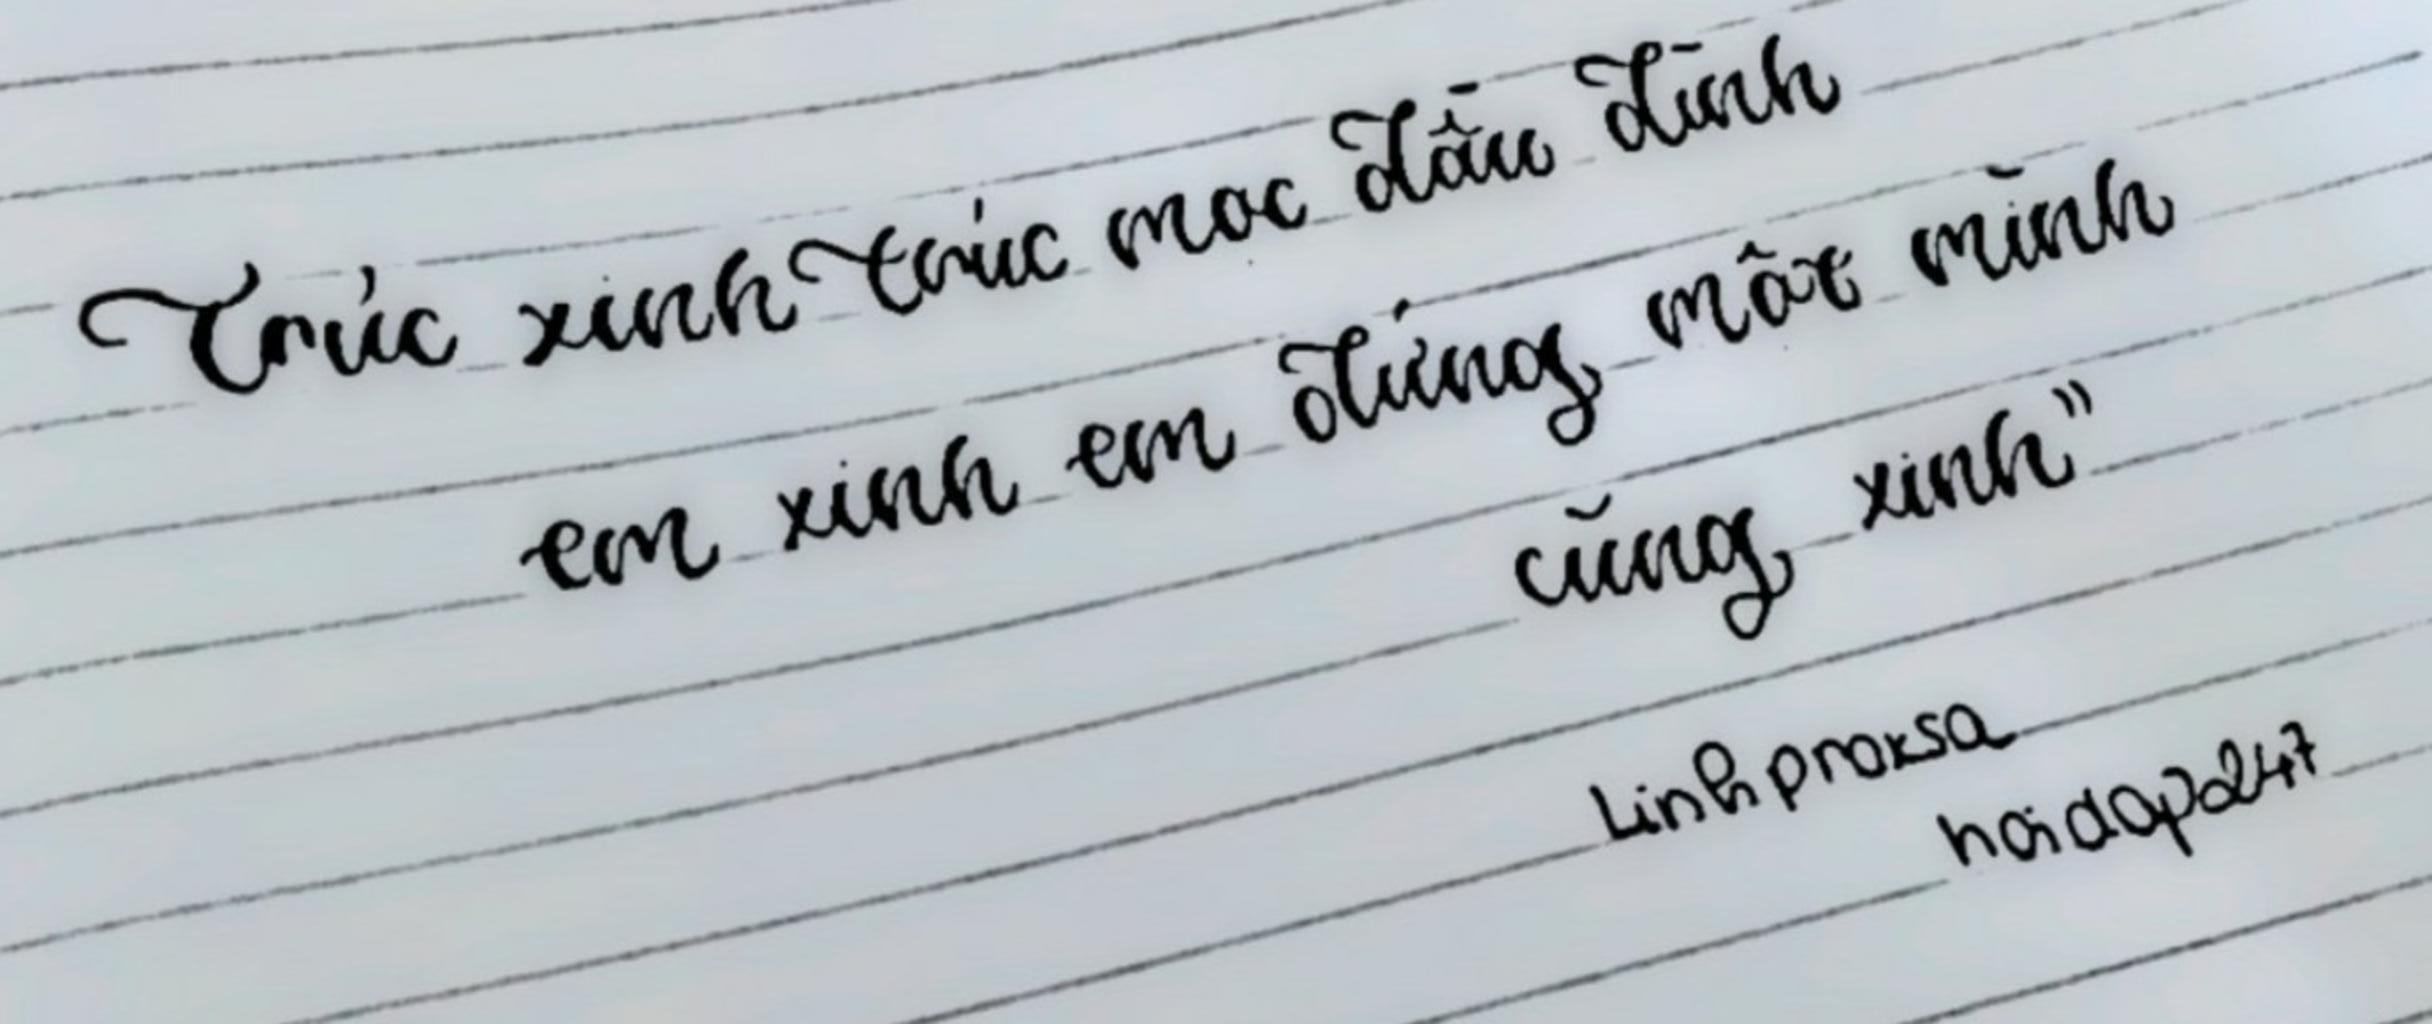 Trúc xinh trúc mọc đầu đình
em xinh em đứng một mình
cũng xinh"
Linhproxsa
hoidap247